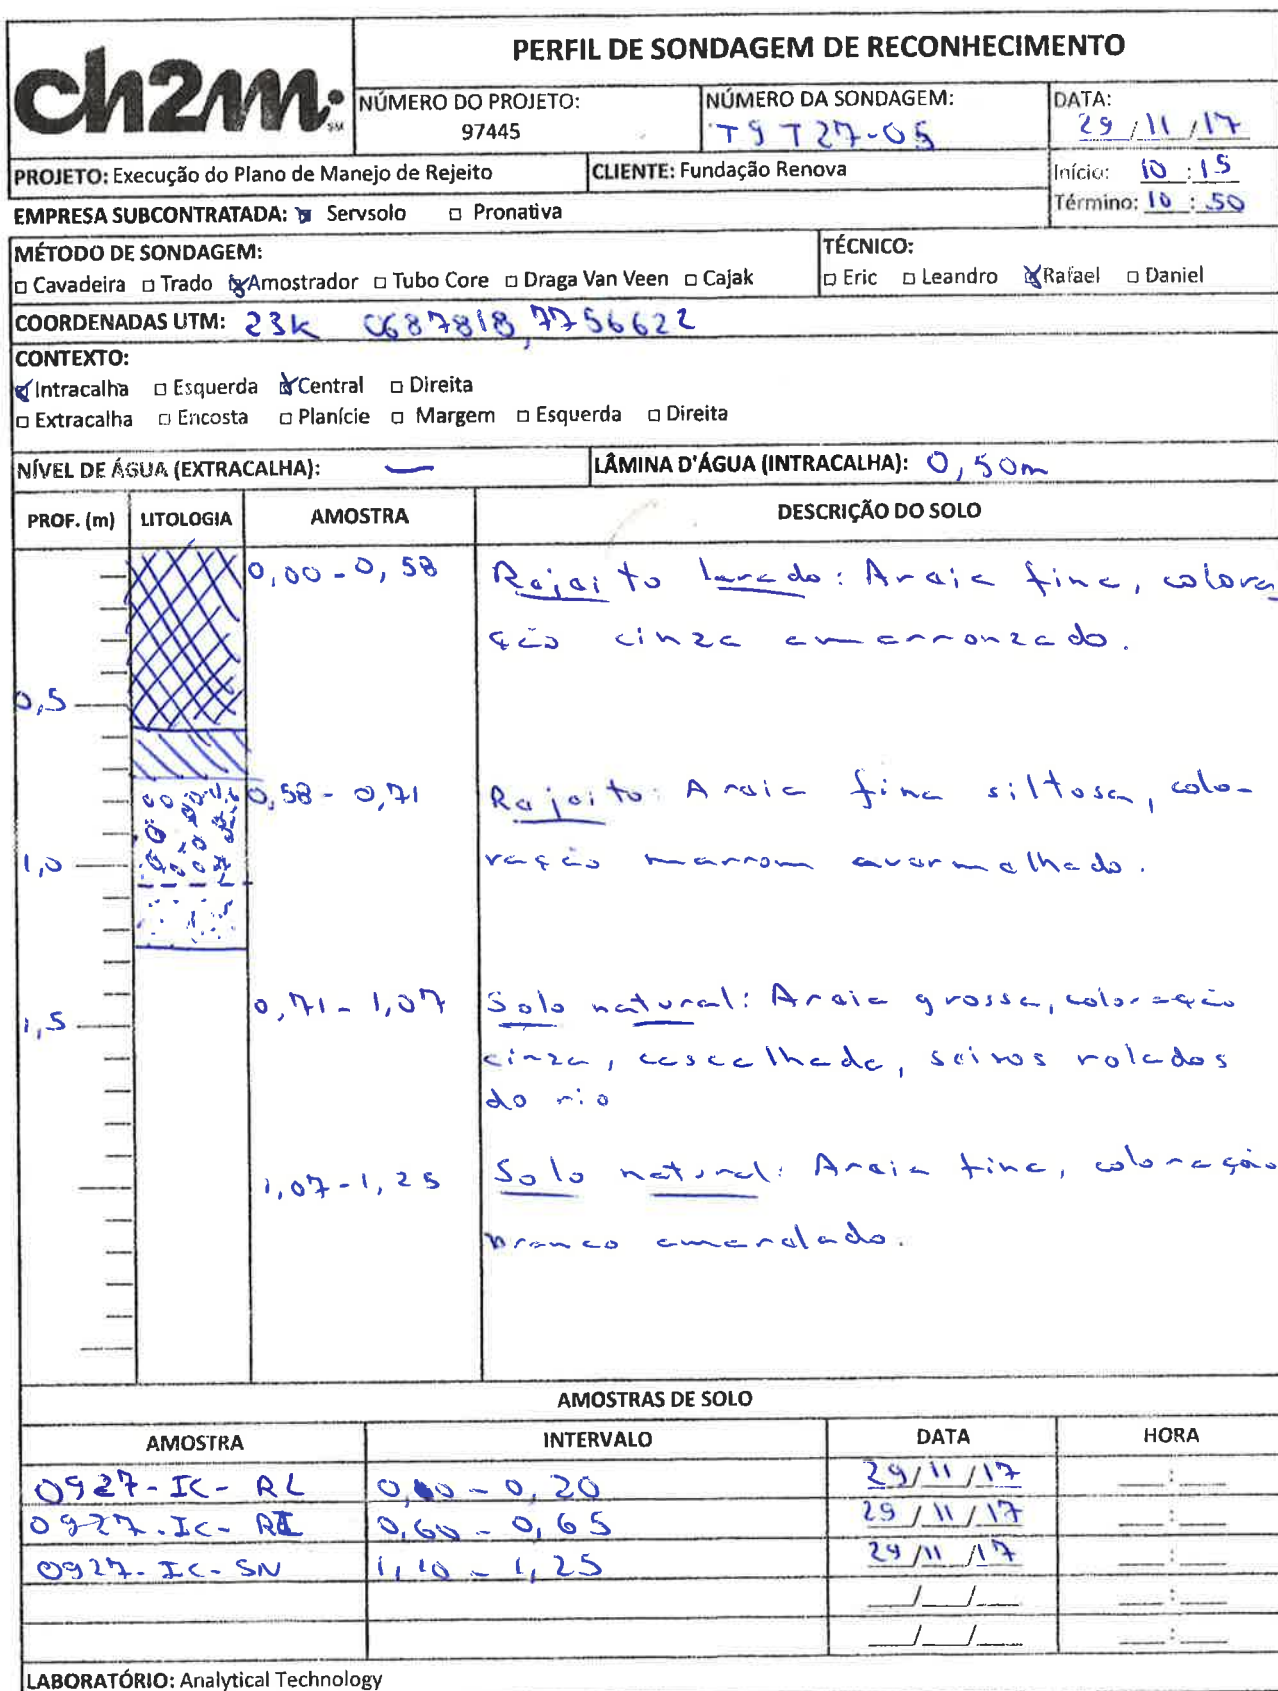 ch2m. SM
PERFIL DE SONDAGEM DE RECONHECIMENTO
NÚMERO DO PROJETO:
97445
NÚMERO DA SONDAGEM:
T9 T27-05
DATA:
29/11/17
PROJETO: Execução do Plano de Manejo de Rejeito
CLIENTE: Fundação Renova
Início: 10:15
Término: 10:50
EMPRESA SUBCONTRATADA: Servsolo Pronativa
MÉTODO DE SONDAGEM:
Cavadeira Trado Amostrador Tubo Core Draga Van Veen Cajak
TÉCNICO:
Eric Leandro Rafael Daniel
COORDENADAS UTM: 23K 0687818, 7756622
CONTEXTO:
Intracalha Esquerda Central Direita
Extracalha Encosta Planície Margem Esquerda Direita
NÍVEL DE ÁGUA (EXTRACALHA): —
LÂMINA D'ÁGUA (INTRACALHA): 0,50m
PROF. (m) LITOLOGIA AMOSTRA DESCRIÇÃO DO SOLO
0,00-0,58 Rejeito lavado: Areia fina, colora
ção cinza amarronzado.
0,5
0,58-0,71 Rejeito: Areia fina siltosa, colo-
ração marrom avermelhado.
1,0
0,71-1,07 Solo natural: Areia grossa, coloração
1,5
cinza, cascalhada, seixos rolados
do rio
1,07-1,25 Solo natural: Areia fina, coloração
branco amarelado.
AMOSTRAS DE SOLO
AMOSTRA INTERVALO DATA HORA
0927-IC-RL 0,00-0,20 29/11/17 __:__
0927-IC-RI 0,60-0,65 29/11/17 __:__
0927-IC-SN 1,10-1,25 29/11/17 __:__
__/__/__ __:__
__/__/__ __:__
LABORATÓRIO: Analytical Technology